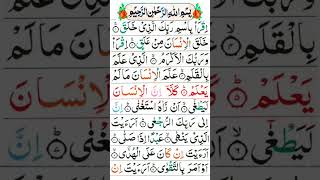 بِسْمِ اللهِ الرَّحْمٰنِ الرَّحِيْمِ
اِقْرَاْ بِاسْمِ رَبِّكَ الَّذِىْ خَلَقَ
خَلَقَ الْاِنْسَانَ مِنْ عَلَقٍ اِقْرَاْ
وَرَبُّكَ الْاَكْرَمُ الَّذِىْ عَلَّمَ
بِالْقَلَمِ عَلَّمَ الْاِنْسَانَ مَالَمْ
يَعْلَمْ كَلَّا اِنَّ الْاِنْسَانَ
لَيَطْغٰى اَنْ رَّاٰهُ اسْتَغْنٰى اِنَّ
اِلٰى رَبِّكَ الرُّجْعٰى اَرَءَيْتَ
الَّذِىْ يَنْهٰى عَبْدًا اِذَا صَلّٰى
اَرَءَيْتَ اِنْ كَانَ عَلَى الْهُدٰى
اَوْ اَمَرَ بِالتَّقْوٰى اَرَءَيْتَ